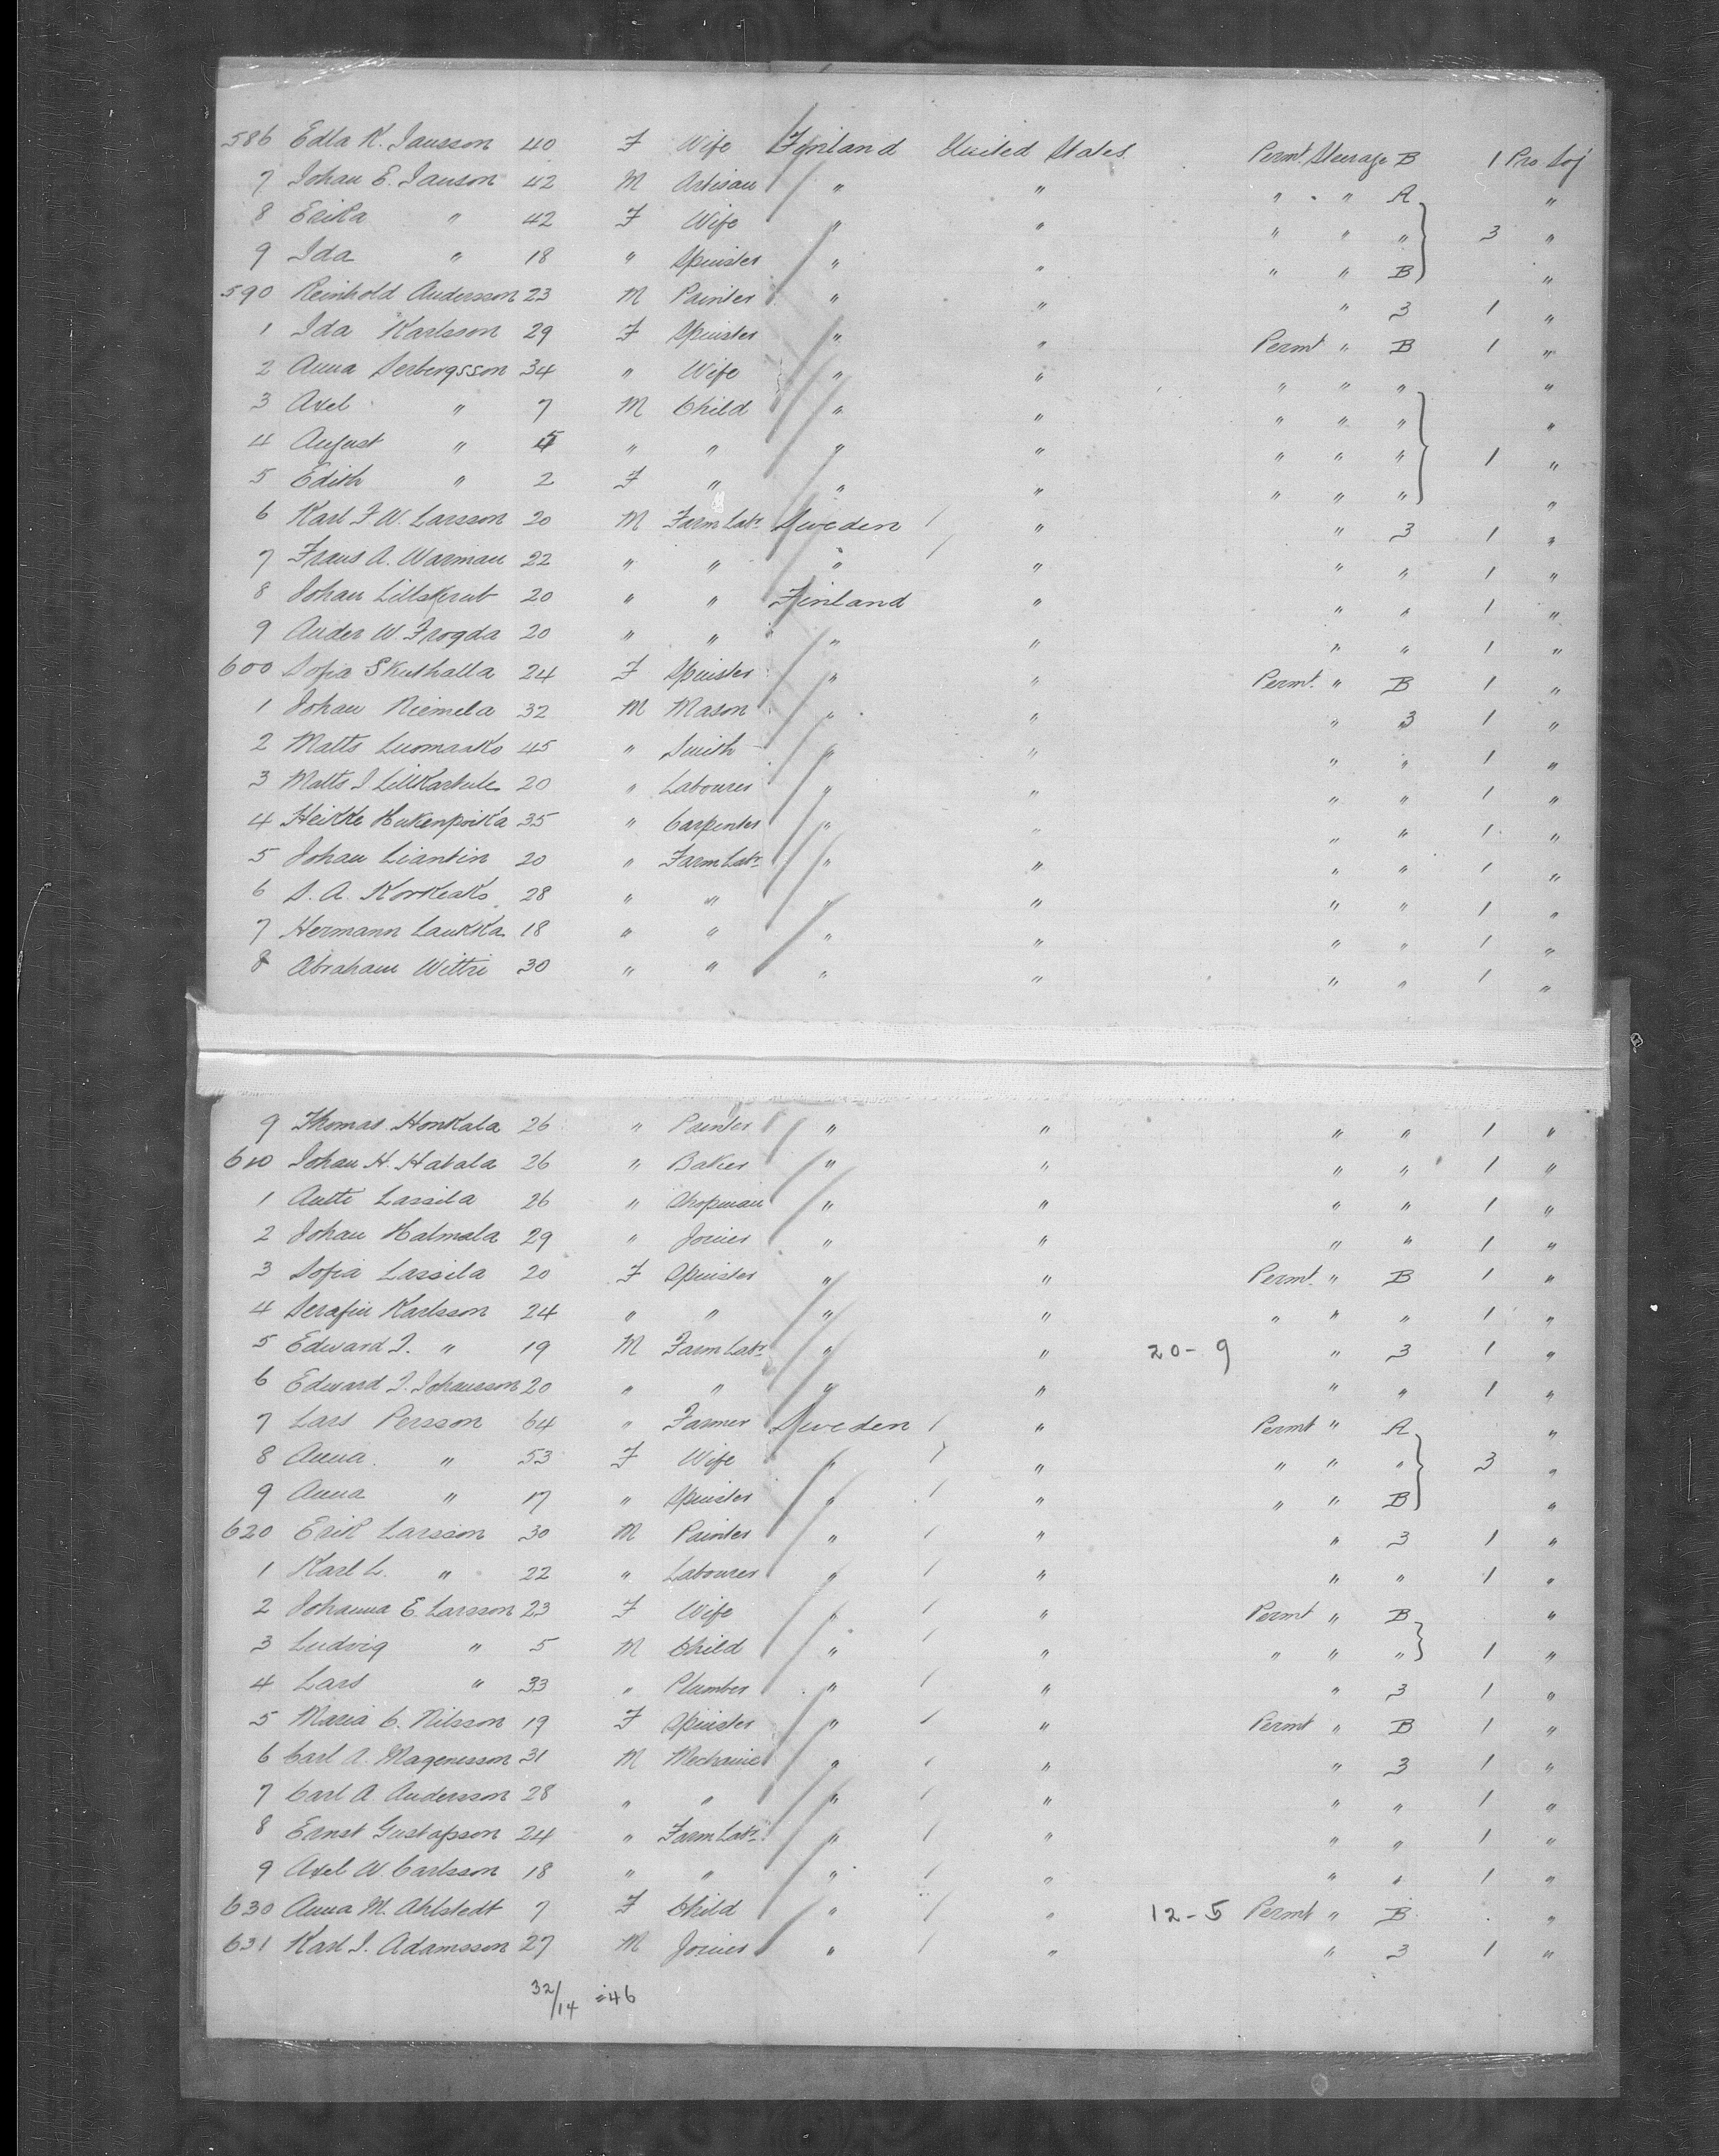 586 Edla K. Jansson 40 F Wife Finland United States Permt. Steerage B 1 Pro Soj
7 Johan E. Janson 42 M Artisan " " " " A "
8 Erika " 42 F Wife " " " " " 3 "
9 Ida " 18 " Spinster " " " " B "
590 Reinhold Andersson 23 M Painter " " " 3 1 "
1 Ida Karlsson 29 F Spinster " " Permt " B 1 "
2 Anna Serbergsson 34 " Wife " " " " " "
3 Axel " 7 M Child " " " " " "
4 August " " " " " " " " 1 "
5 Edith " 2 F " " " " " " "
6 Karl F W. Larsson 20 M Farm Labr Sweden / " " 3 1 "
7 Frans A. Warman 22 " " " / " " " 1 "
8 Johan 20 " " Finland " " " 1 "
9 Ander W. Frogda 20 " " " " " " 1 "
600 Sofia Skuthalla 24 F Spinster " " Permt. " B 1 "
1 Johan Niemela 32 M Mason " " " 3 1 "
2 Matts Luomaako 45 " Smith " " " " 1 "
3 Matts J 20 " Labourer " " " " 1 "
4 Heikke 35 " Carpenter " " " " 1 "
5 Johan Liantin 20 " Farm Labr " " " " 1 "
6 S. A. Korkeako 28 " " " " " " 1 "
7 Hermann Laukka 18 " " " " " " 1 "
8 Abraham Wittri 30 " " " " " " 1 "
9 Thomas Honkala 26 " Painter " " " " 1 "
610 Johan H. Habala 26 " Baker " " " " 1 "
1 Antti Lassila 26 " Shopman " " " " 1 "
2 Johan Halmala 29 " Joiner " " " " 1 "
3 Sofia Lassila 20 F Spinster " " Permt. " B 1 "
4 Serafin Karlsson 24 " " " " " " " 1 "
5 Edward J. " 19 M Farm Labr " " 20-9 " 3 1 "
6 Edward J. Johansson 20 " " " " " " 1 "
7 Lars Persson 64 " Farmer Sweden / " Permt " A "
8 Anna " 53 F Wife " / " " " " 3 "
9 Anna " 17 " Spinster " / " " " B "
620 Erik Larsson 30 M Painter " / " " 3 1 "
1 Karl L. " 22 " Labourer " / " " " 1 "
2 Johanna E. Larsson 23 F Wife " / " Permt " B "
3 Ludvig " 5 M Child " / " " " " 1 "
4 Lars " 33 " Plumber " / " " 3 1 "
5 Maria C. Nilsson 19 F Spinster " / " Permt " B 1 "
6 Carl A. Magenesson 31 M Mechanic " / " " 3 1 "
7 Carl A Andersson 28 " " " / " " " 1 "
8 Ernst Gustafsson 24 " Farm Labr " / " " " 1 "
9 Axel W. Carlsson 18 " " " / " " " 1 "
630 Anna M. Ahlstedt 7 F Child " / " 12-5 Permt " B "
631 Karl J. Adamsson 27 M Joiner " / " " 3 1 "
32/14 = 46